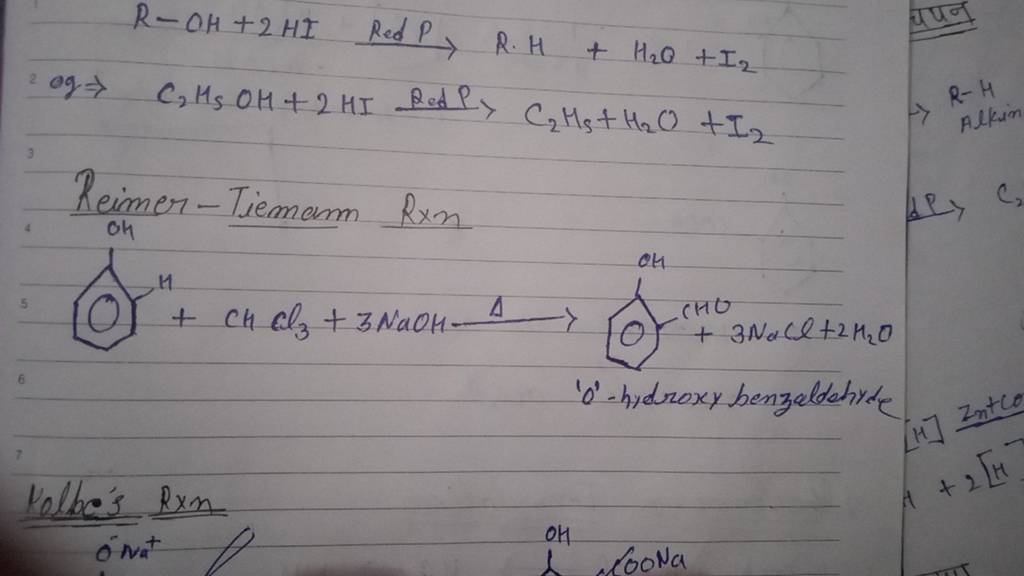 R-OH + 2HI Red P → R.H + H₂O + I₂
eg ⇒ C₂H₅OH + 2HI Red P → C₂H₅ + H₂O + I₂
Reimer-Tiemann Rxn
OH H + CHCl₃ + 3NaOH Δ → OH CHO + 3NaCl + 2H₂O
'O'-hydroxy benzaldehyde
Kolbe's Rxn
O⁻Na⁺ OH COONa
1
2
3
4
5
6
7
→ R-H
P → C₂
[H]
+ 2[H